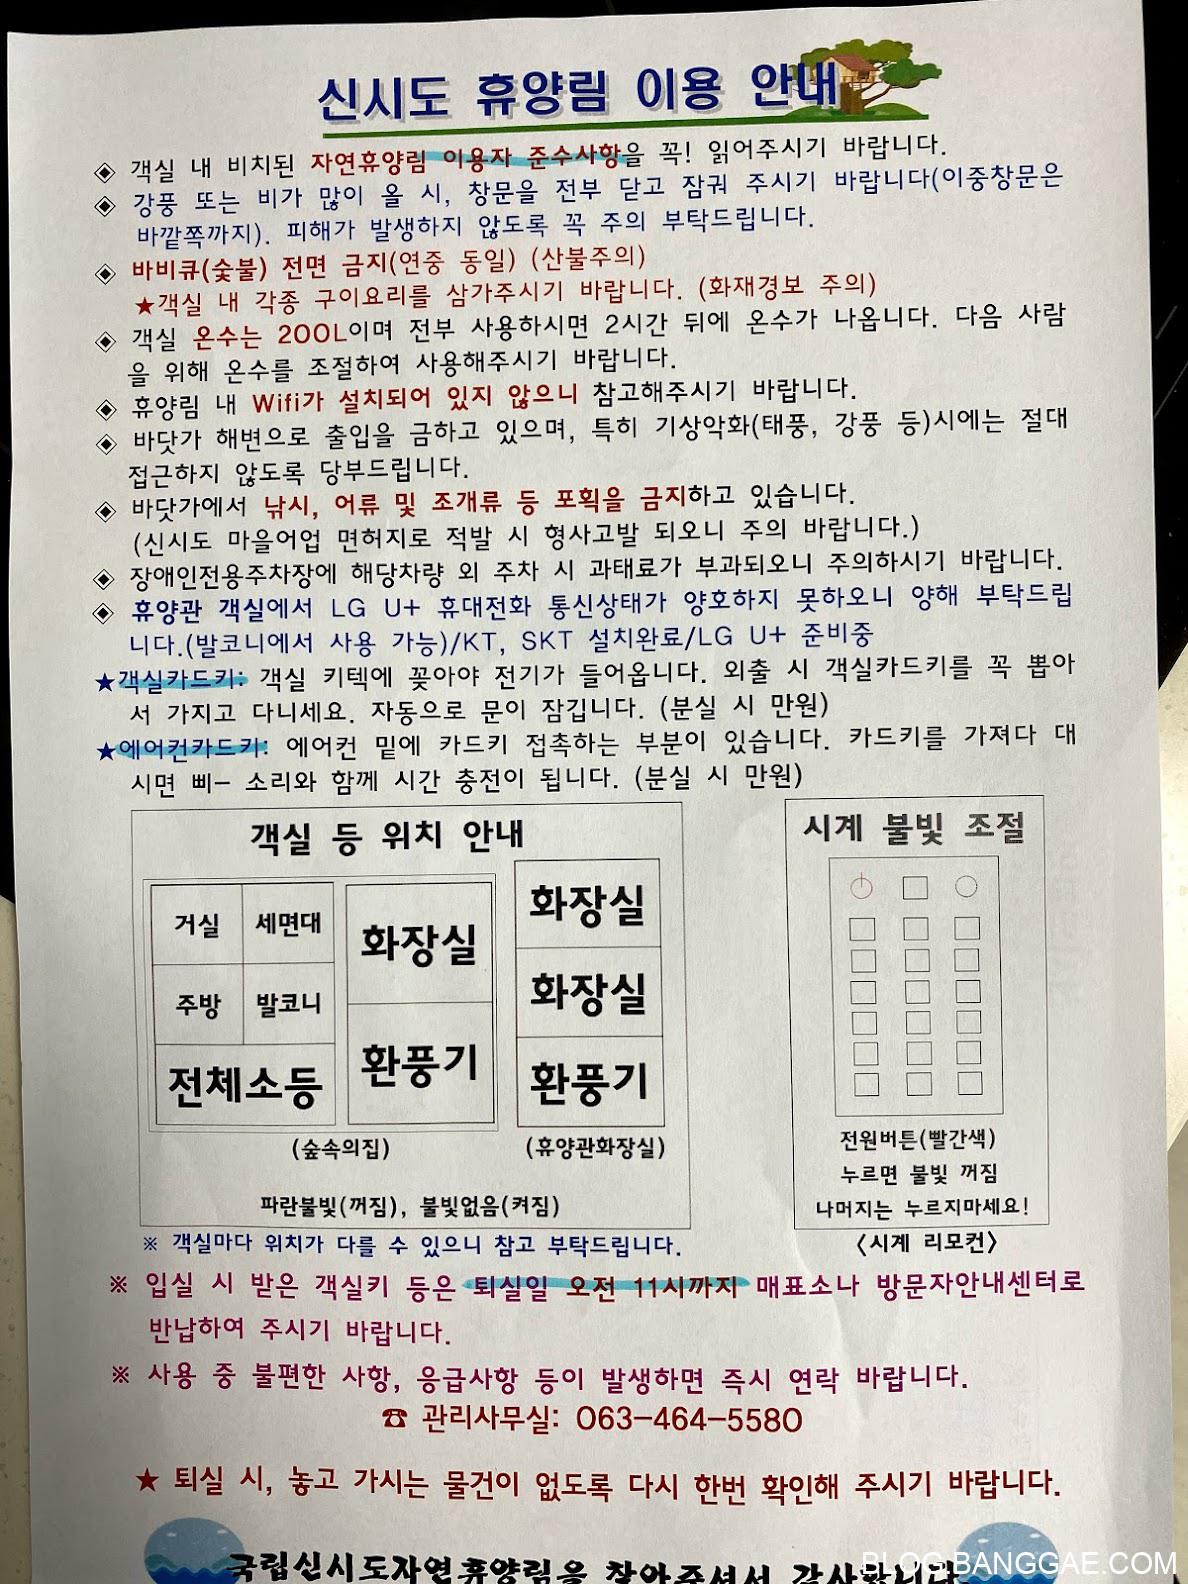 신시도 휴양림 이용 안내
◈ 객실 내 비치된 자연휴양림 이용자 준수사항을 꼭! 읽어주시기 바랍니다.
◈ 강풍 또는 비가 많이 올 시, 창문을 전부 닫고 잠궈 주시기 바랍니다(이중창문은
바깥쪽까지). 피해가 발생하지 않도록 꼭 주의 부탁드립니다.
◈ 바비큐(숯불) 전면 금지(연중 동일) (산불주의)
★객실 내 각종 구이요리를 삼가주시기 바랍니다. (화재경보 주의)
◈ 객실 온수는 200L이며 전부 사용하시면 2시간 뒤에 온수가 나옵니다. 다음 사람
을 위해 온수를 조절하여 사용해주시기 바랍니다.
◈ 휴양림 내 Wifi가 설치되어 있지 않으니 참고해주시기 바랍니다.
◈ 바닷가 해변으로 출입을 금하고 있으며, 특히 기상악화(태풍, 강풍 등)시에는 절대
접근하지 않도록 당부드립니다.
◈ 바닷가에서 낚시, 어류 및 조개류 등 포획을 금지하고 있습니다.
(신시도 마을어업 면허지로 적발 시 형사고발 되오니 주의 바랍니다.)
◈ 장애인전용주차장에 해당차량 외 주차 시 과태료가 부과되오니 주의하시기 바랍니다.
◈ 휴양관 객실에서 LG U+ 휴대전화 통신상태가 양호하지 못하오니 양해 부탁드립
니다.(발코니에서 사용 가능)/KT, SKT 설치완료/LG U+ 준비중
★객실카드키: 객실 키텍에 꽂아야 전기가 들어옵니다. 외출 시 객실카드키를 꼭 뽑아
서 가지고 다니세요. 자동으로 문이 잠깁니다. (분실 시 만원)
★에어컨카드키: 에어컨 밑에 카드키 접촉하는 부분이 있습니다. 카드키를 가져다 대
시면 삐- 소리와 함께 시간 충전이 됩니다. (분실 시 만원)
객실 등 위치 안내
거실 세면대
주방 발코니
전체소등
화장실
환풍기
(숲속의집)
화장실
화장실
환풍기
(휴양관화장실)
파란불빛(꺼짐), 불빛없음(켜짐)
※ 객실마다 위치가 다를 수 있으니 참고 부탁드립니다.
시계 불빛 조절
전원버튼(빨간색)
누르면 불빛 꺼짐
나머지는 누르지마세요!
〈시계 리모컨〉
※ 입실 시 받은 객실키 등은 퇴실일 오전 11시까지 매표소나 방문자안내센터로
반납하여 주시기 바랍니다.
※ 사용 중 불편한 사항, 응급사항 등이 발생하면 즉시 연락 바랍니다.
☎ 관리사무실: 063-464-5580
★ 퇴실 시, 놓고 가시는 물건이 없도록 다시 한번 확인해 주시기 바랍니다.
국립신시도자연휴양림을 찾아주셔서 감사합니다
BLOG.BANGGAE.COM